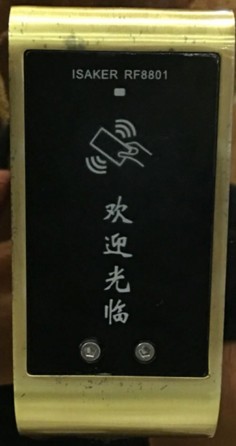 ISAKER RF8801
欢
迎
光
临